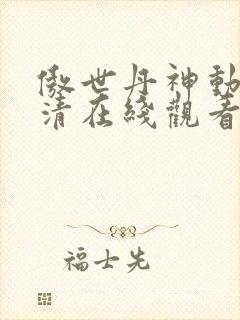 傲世丹神動
清在綫觀看
福士先